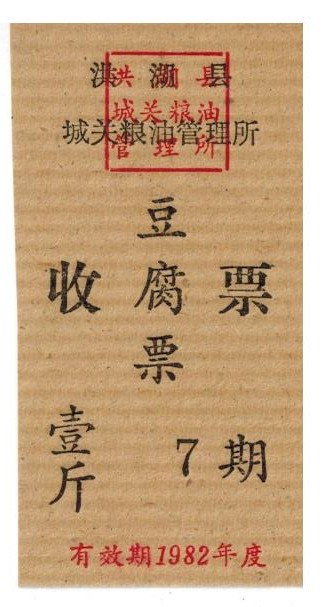 洪湖县
城关粮油管理所
洪湖县
城关粮油
管理所
豆腐票
收票
壹斤
7期
有效期1982年度